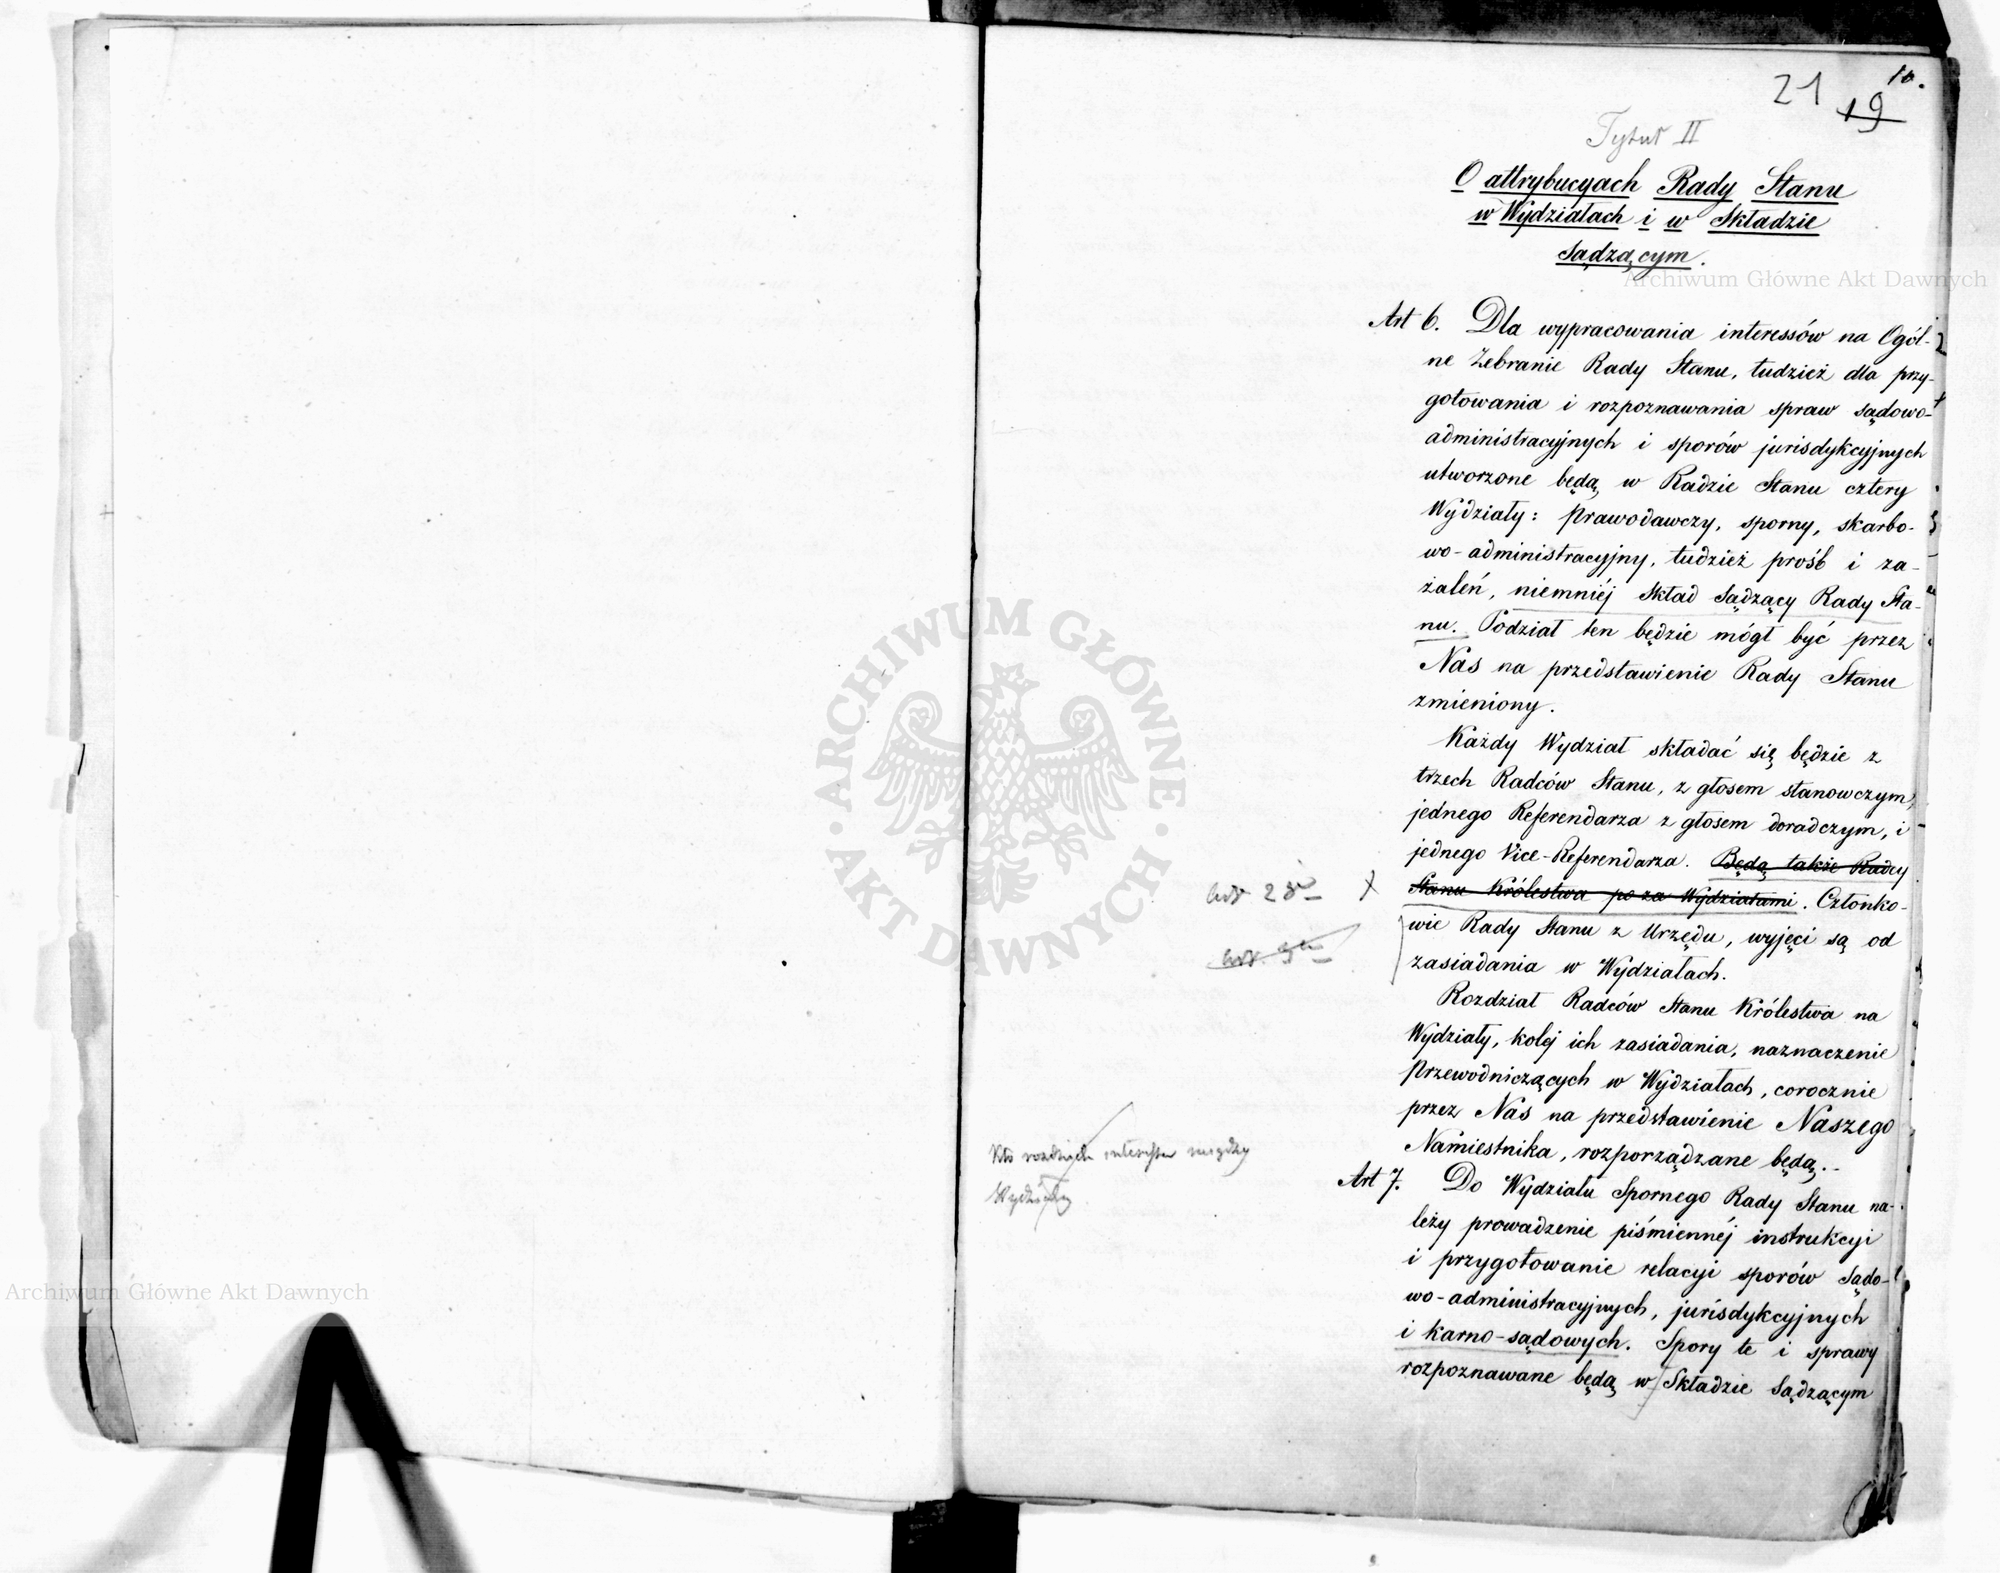 10.
21
19
Tytuł II
O attrybucyach Rady Stanu
w Wydziałach i w Składzie
Sądzącym.
Art 6. Dla wypracowania interessów na Ogól-
ne Zebranie Rady Stanu, tudzież dla przy-
gotowania i rozpoznawania spraw sądowo-
administracyjnych i sporów jurisdykcyjnych
utworzone będą w Radzie Stanu cztery
Wydziały: Prawodawczy, sporny, skarbo-
wo-administracyjny, tudzież próśb i za-
żaleń, niemniéj Skład Sądzący Rady Sta-
nu. Podział ten będzie mógł być przez
Nas na przedstawienie Rady Stanu
zmieniony.
Każdy Wydział składać się będzie z
trzech Radców Stanu, z głosem stanowczym,
jednego Referendarza z głosem doradczym, i
jednego Vice-Referendarza. Będą także Radcy
Stanu Królestwa po za Wydziałami. Członko-
wie Rady Stanu z Urzędu, wyjęci są od
zasiadania w Wydziałach.
Rozdział Radców Stanu Królestwa na
Wydziały, koléj ich zasiadania, naznaczenie
Przewodniczących w Wydziałach, corocznie
przez Nas na przedstawienie Naszego
Namiestnika, rozporządzane będą.
Art 7. Do Wydziału Spornego Rady Stanu na-
leży prowadzenie piśmiennéj instrukcyi
i przygotowanie relacyi sporów Sądo-
wo-administracyjnych, jurisdykcyjnych
i karno-sądowych. Spory te i sprawy
rozpoznawane będą w Składzie Sądzącym
28
Kto rozdziela między
Wydziały
Archiwum Główne Akt Dawnych
Archiwum Główne Akt Dawnych
ARCHIWUM GŁÓWNE
AKT DAWNYCH